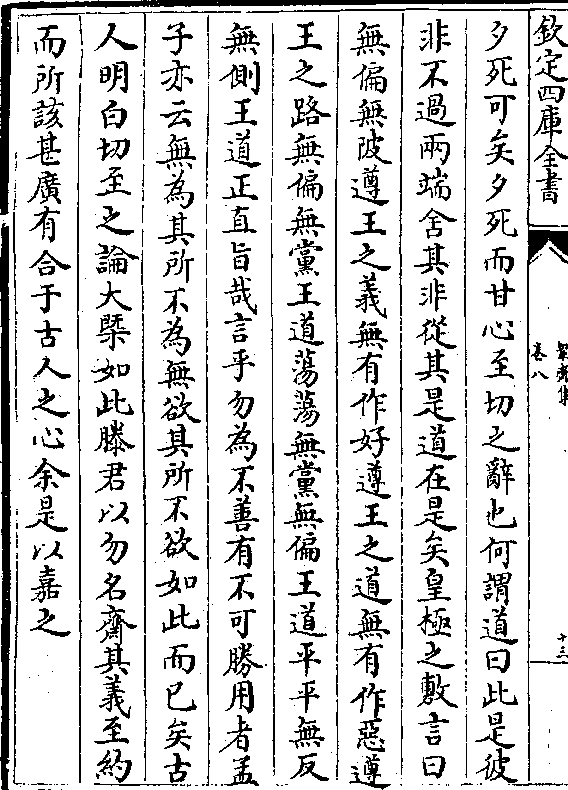 欽定四庫全書
卷八
十三
夕死可矣夕死而甘心至切之辭也何謂道曰此是彼
非不過兩端舍其非從其是道在是矣皇極之敷言曰
無偏無陂遵王之義無有作好遵王之道無有作惡遵
王之路無偏無黨王道蕩蕩無黨無偏王道平平無反
無側王道正直旨哉言乎勿為不善有不可勝用者孟
子亦云無為其所不為無欲其所不欲如此而已矣古
人明白切至之論大槩如此滕君以勿名齋其義至約
而所該甚廣有合于古人之心余是以嘉之